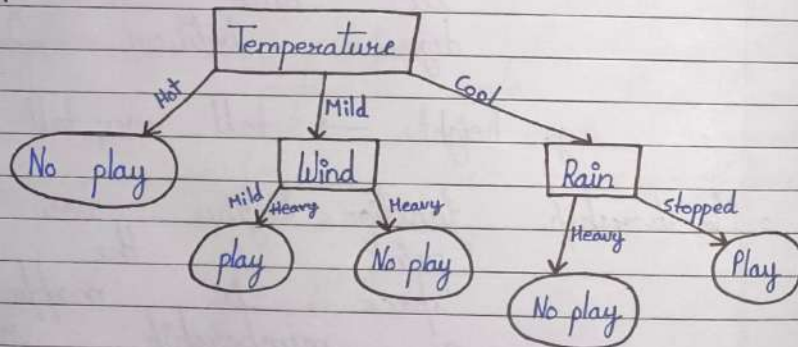 Temperature
Hot
Mild
Cool
No play
Wind
Rain
Mild
Heavy
Heavy
Heavy
Stopped
play
No play
No play
Play